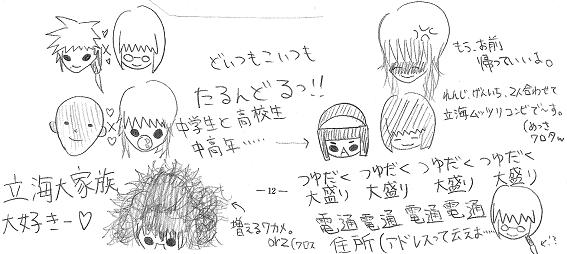 どいつもこいつも
たるんどるっ!!
中学生と高校生
中高年……
もう、お前
帰っていいよ。
れんじ、げんいち、2人合わせて
立海ムッツリコンビでーす。
(めっさ
立海大家族
大好きー♡
増えるワカメ。
orz
- 12 -
つゆだく つゆだく つゆだく つゆだく
大盛り 大盛り 大盛り 大盛り
電通電通電通電通
住所(アドレスって云えよ…